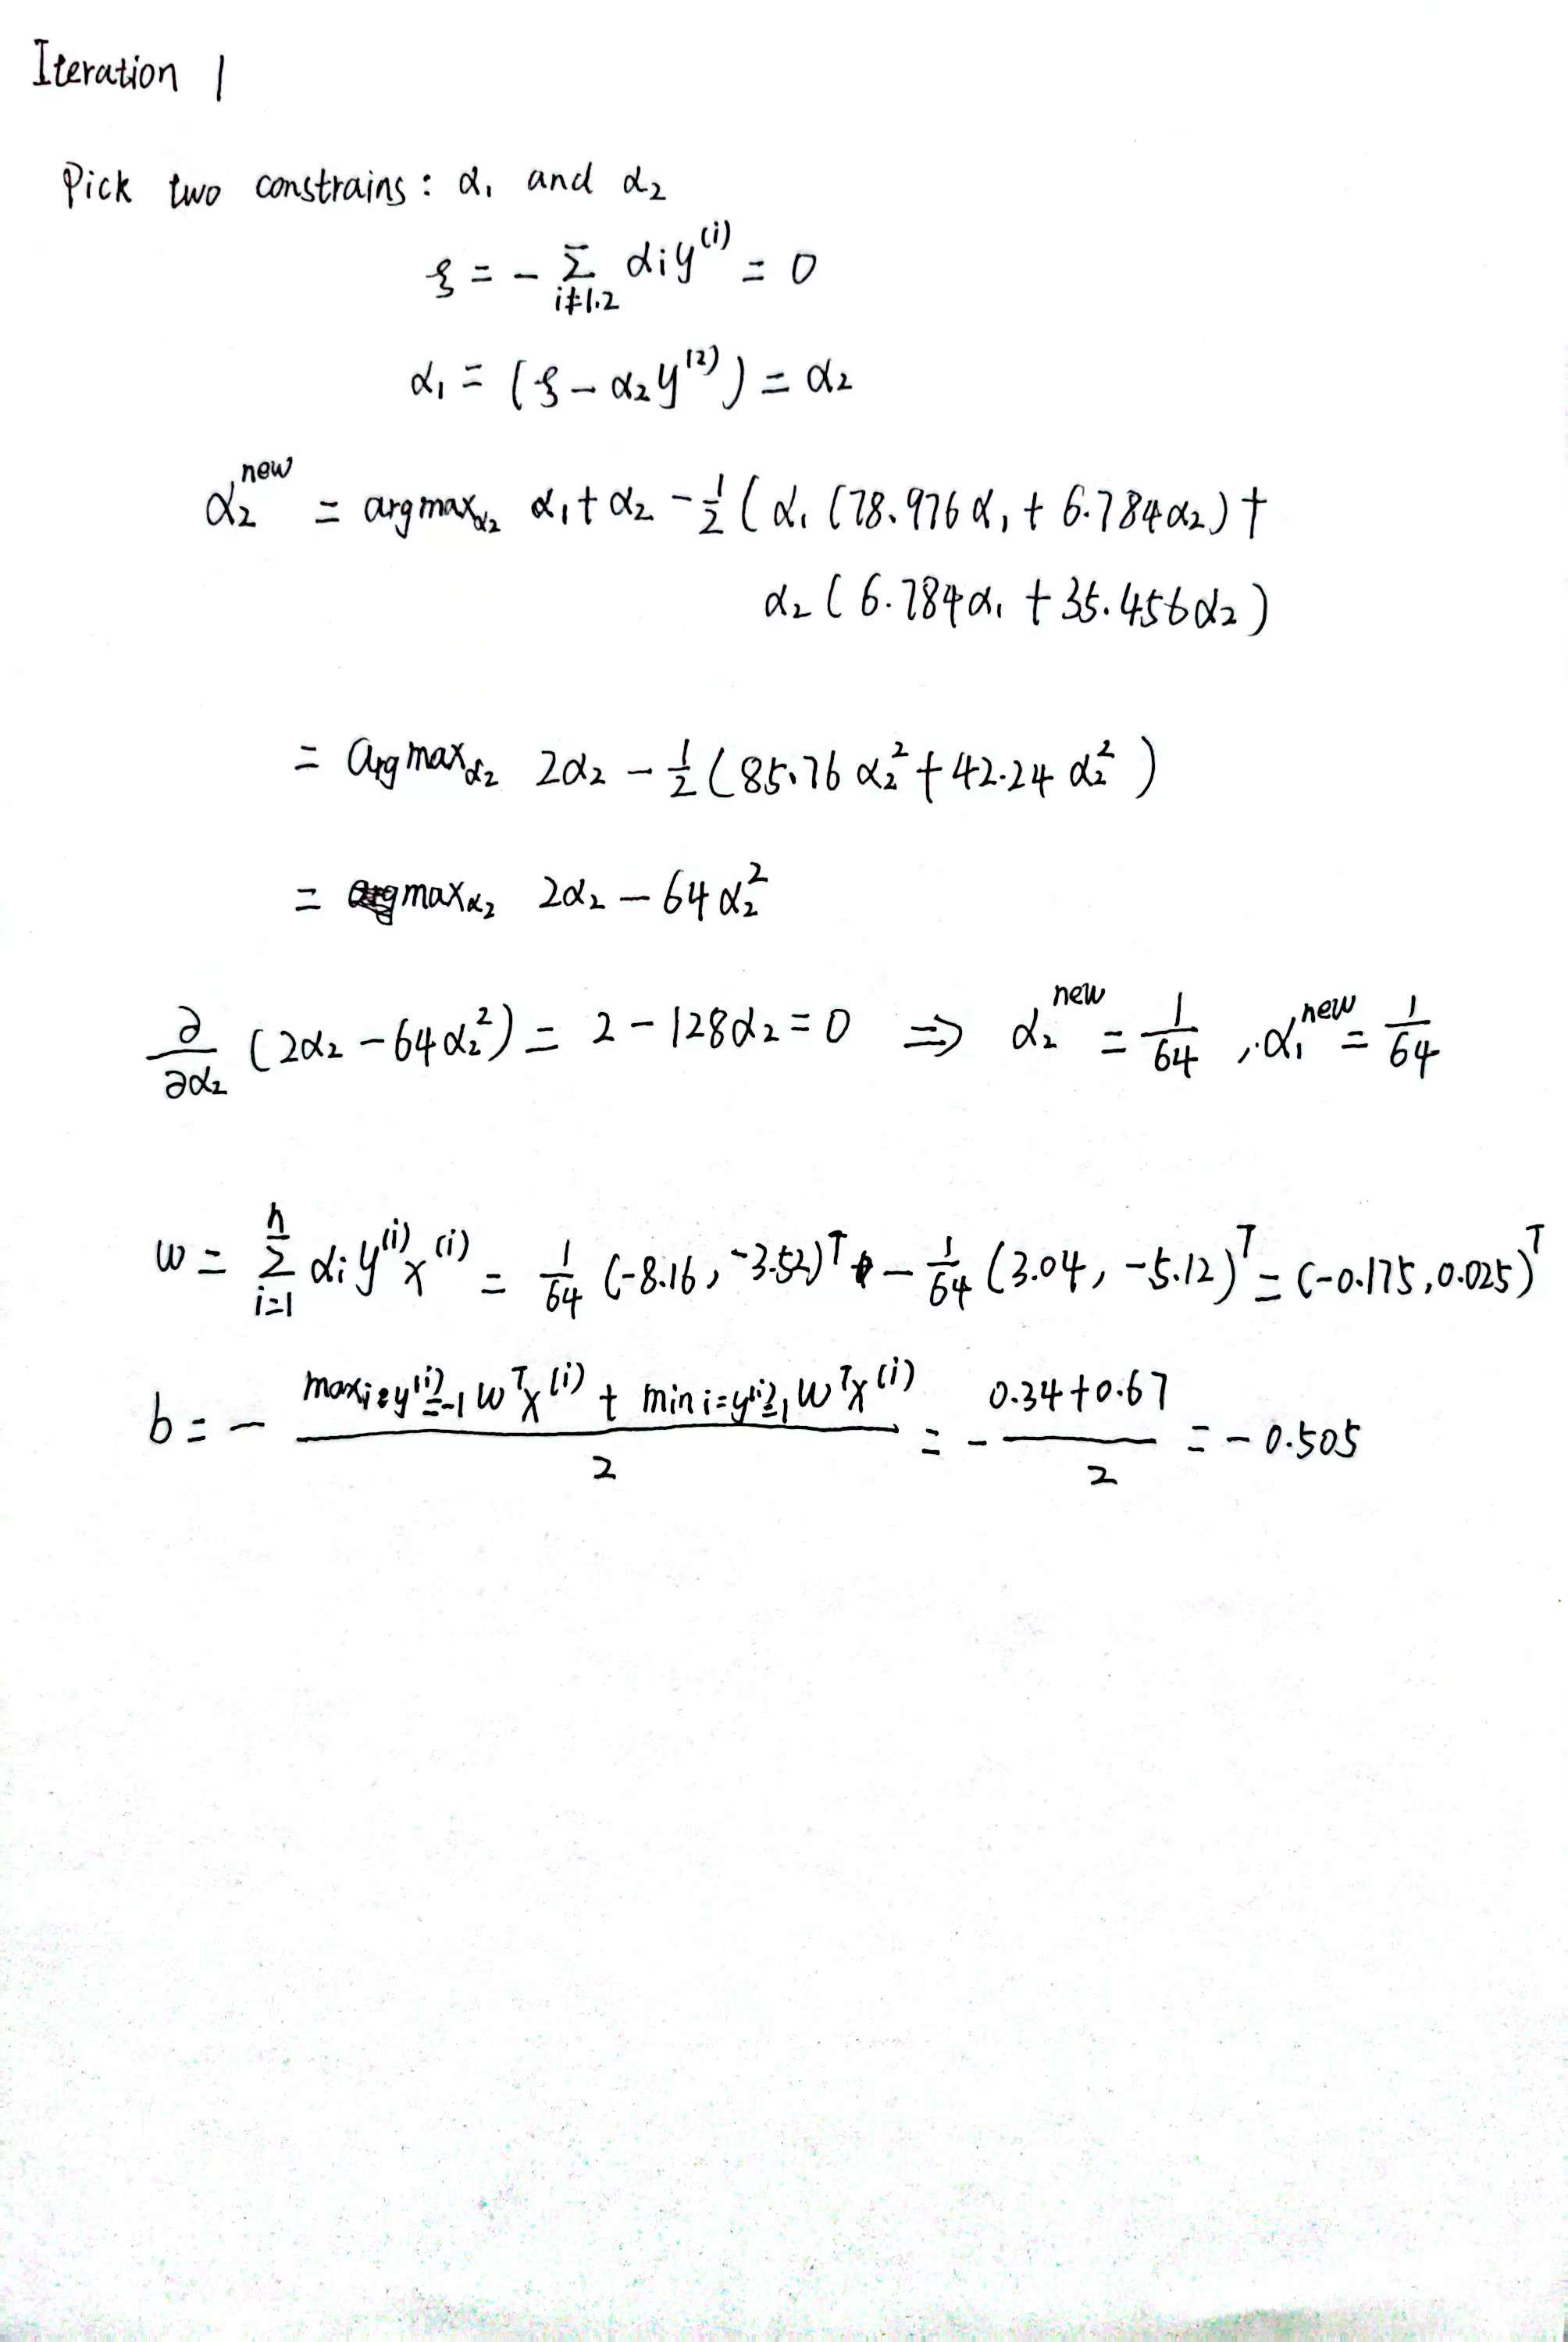 Iteration 1
Pick two constrains: α₁ and α₂
ξ = - Σ_{i≠1.2} αᵢy⁽ⁱ⁾ = 0
α₁ = (ξ - α₂y⁽²⁾) = α₂
α₂^new = argmax_{α₂} α₁ + α₂ - 1/2 (α₁ (78.976α₁ + 6.784α₂) +
α₂ (6.784α₁ + 35.456α₂)
= argmax_{α₂} 2α₂ - 1/2 (85.76α₂² + 42.24α₂²)
= argmax_{α₂} 2α₂ - 64α₂²
∂/∂α₂ (2α₂ - 64α₂²) = 2 - 128α₂ = 0 ⇒ α₂^new = 1/64 , α₁^new = 1/64
w = Σ_{i=1}^{n} αᵢy⁽ⁱ⁾x⁽ⁱ⁾ = 1/64 (-8.16, -3.52)ᵀ - 1/64 (3.04, -5.12)ᵀ = (-0.175, 0.025)ᵀ
b = - (max_{i:y⁽ⁱ⁾=-1} wᵀx⁽ⁱ⁾ + min_{i=y⁽ⁱ⁾=1} wᵀx⁽ⁱ⁾)/2 = - (0.34 + 0.67)/2 = - 0.505